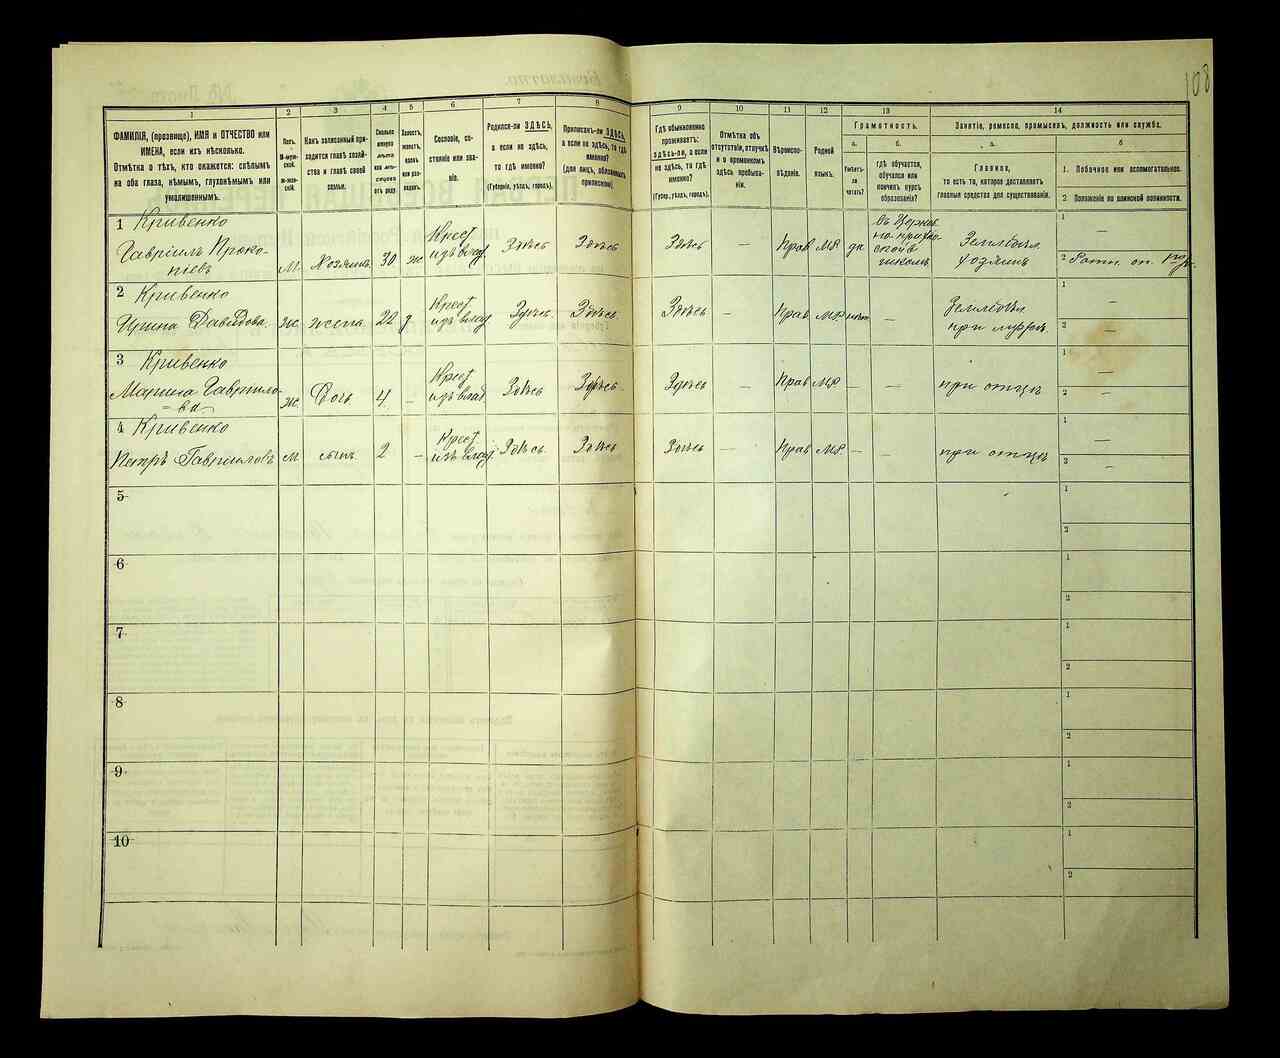 108
1
2
3
4
5
6
7
8
9
10
11
12
13
14
ФАМИЛІЯ, (прозвище), ИМЯ и ОТЧЕСТВО или
ИМЕНА, если ихъ нѣсколько.
Отмѣтка о тѣхъ, кто окажется: слѣпымъ
на оба глаза, нѣмымъ, глухонѣмымъ или
умалишеннымъ.
Полъ.
М-муж-
ской.
Ж-жен-
скій.
Какъ записанный при-
ходится главѣ хозяй-
ства и главѣ своей
семьи.
Сколько
минуло
лѣтъ
или мѣ-
сяцевъ
отъ роду.
Холостъ,
женатъ,
вдовъ
или раз-
веденъ.
Сословіе, со-
стояніе или зва-
ніе.
Родился-ли ЗДѢСЬ,
а если не здѣсь,
то гдѣ именно?
(Губернія, уѣздъ, городъ).
Приписанъ-ли ЗДѢСЬ,
а если не здѣсь, то гдѣ
именно?
(для лицъ, обязанныхъ
припиской).
Гдѣ обыкновенно
проживаетъ:
здѣсь-ли, а если
не здѣсь, то гдѣ
именно?
(Губер., уѣздъ, городъ).
Отмѣтка объ
отсутствіи, отлучкѣ
и о временномъ
здѣсь пребыва-
ніи.
Вѣроиспо-
вѣданіе.
Родной
языкъ.
Грамотность.
а.
Умѣетъ-
ли
читать?
б.
гдѣ обучается,
обучался или
кончилъ курсъ
образованія?
Занятіе, ремесло, промыселъ, должность или служба.
а.
Главное,
то есть то, которое доставляетъ
главныя средства для существованія.
б
1. Побочное или вспомогательное.
2. Положеніе по воинской повинности.
1 Кривенко
Гавріилъ Проко-
піевъ
М. Хозяинъ 30 ж Крест. изъ влад. Здѣсь Здѣсь Здѣсь — Прав М.Р. да
въ Церков
но-прихо-
дской
школѣ
Земледѣл.
хозяинъ
1 —
2 Ратн. оп.
2 Кривенко
Ирина Давидова.
ж. жена 22 з Крест. изъ влад Здѣсь Здѣсь. Здѣсь — Прав М.Р. нѣтъ —
Земледѣл
при мужѣ
1 —
2 —
3 Кривенко
Марина Гаврило-
ва
ж. Дочь 4 — Крест. изъ влад Здѣсь Здѣсь Здѣсь — Прав М.Р. — — при отцѣ
1 —
2 —
4 Кривенко
Петръ Гавриловъ м. сынъ 2 — Крест. изъ влад. Здѣсь. Здѣсь Здѣсь — Прав М.Р. — — при отцѣ
1 —
2 —
5
1
2
6
1
2
7
1
2
8
1
2
9
1
2
10
1
2